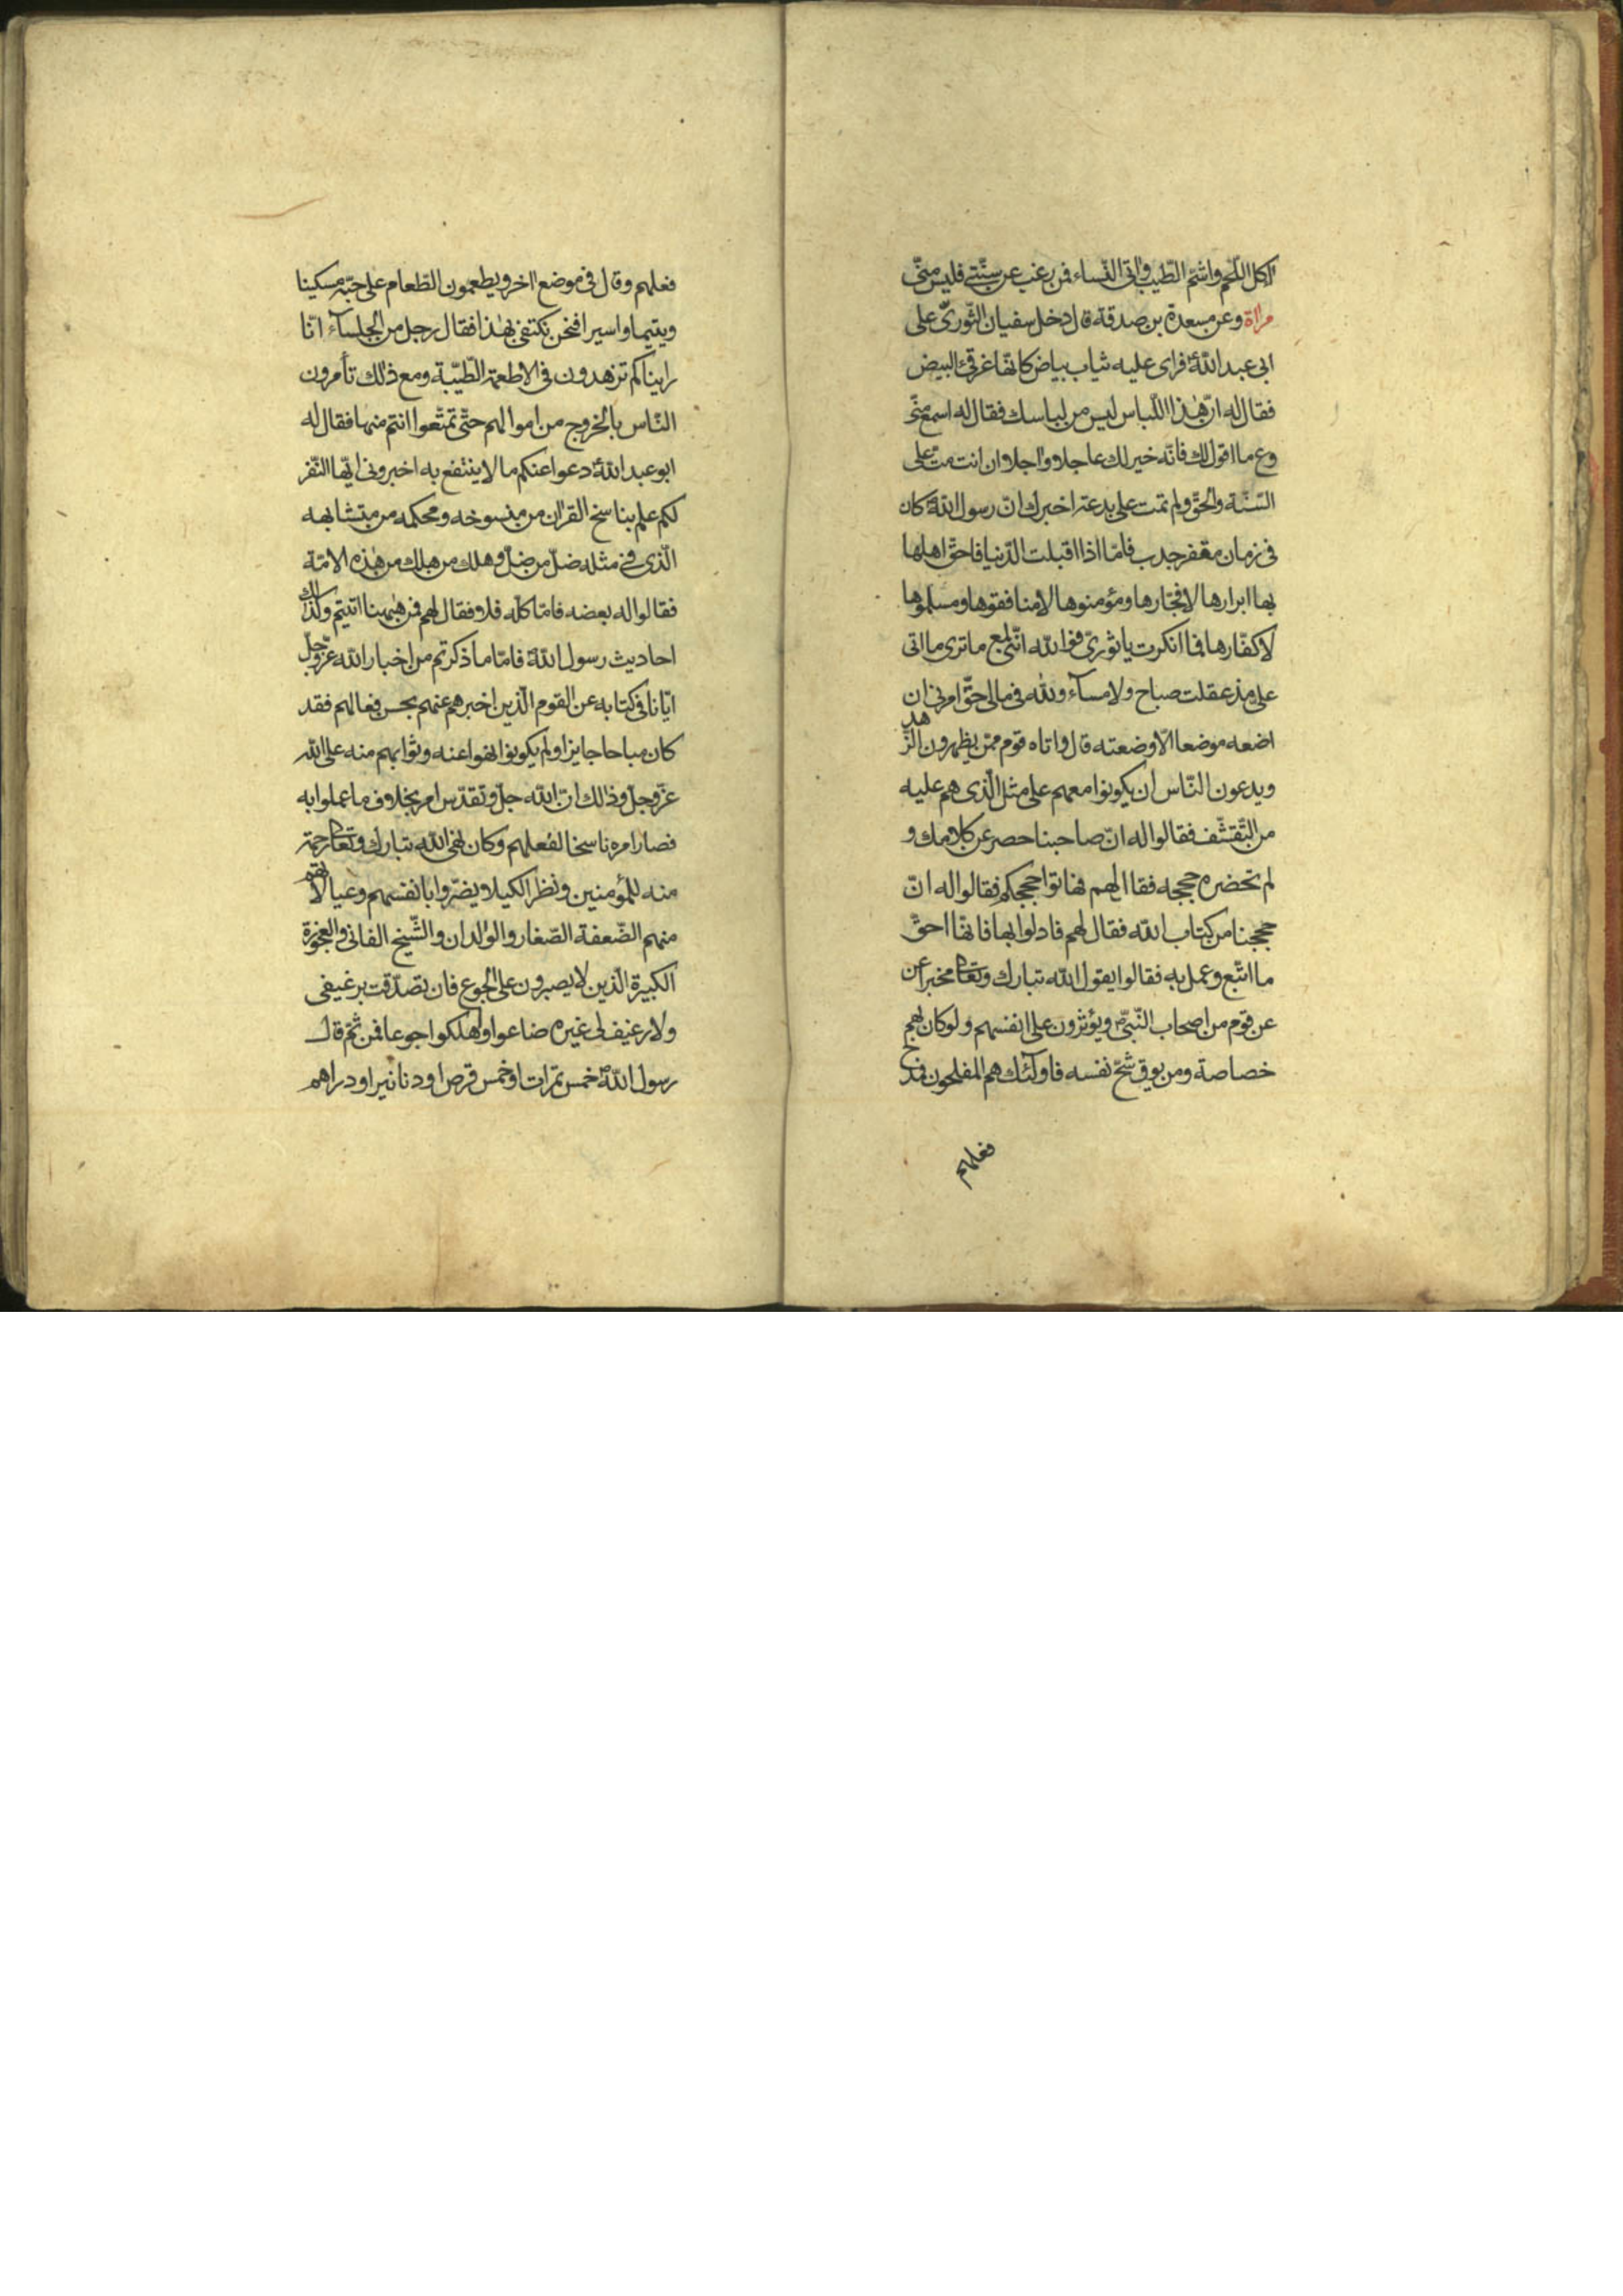 اكل اللّحم واشمّ الطّيب واتى النّساء فمن رغب عن سنّتى فليس منّى
مراة وعن مسعدة بن صدقة قال دخل سفيان الثّورىّ على
ابى عبد اللّه فراى عليه ثياب بياض كانّها غرقئ البيض
فقال له انّ هذا اللّباس ليس من لباسك فقال له اسمع منّى
وع ما اقول لك فانّه خير لك عاجلا واجلا ان انت متّ على
السّنّة والحقّ ولم تمت على بدعة اخبرك انّ رسول اللّه كان
فى زمان مقفر جدب فامّا اذا اقبلت الدّنيا فاحقّ اهلها
بها ابرارها لا فجّارها ومؤمنوها لا منافقوها ومسلموها
لا كفّارها فما انكرت يا ثورىّ فو اللّه انّنى لمع ما ترى ما اتى
علىّ مذ عقلت صباح ولا مسآء وللّه فى مالى حقّ امرنى ان
اضعه موضعا الّا وضعته قال واتاه قوم ممّن يظهرون الزّهد
ويدعون النّاس ان يكونوا معهم على مثل الّذى هم عليه
من التّقشّف فقالوا له انّ صاحبنا حصر عن كلامك و
لم تحضره حججه فقال لهم فهاتوا حججكم فقالوا له انّ
حججنا من كتاب اللّه فقال لهم فادلوا بها فانّها احقّ
ما اتّبع وعمل به فقالوا يقول اللّه تبارك وتعالى مخبرا عن
عن قوم من اصحاب النّبىّ ويؤثرون على انفسهم ولو كان بهم
خصاصة ومن يوق شحّ نفسه فاولئك هم المفلحون فمدح
فعلهم
فعلهم وقال فى موضع اخر ويطعمون الطّعام على حبّه مسكينا
ويتيما واسيرا فنحن نكتفى بهذا فقال رجل من الجلسآء انّا
رايناكم تزهدون فى الاطعمة الطّيّبة ومع ذلك تأمرون
النّاس بالخروج من اموالهم حتّى تمتّعوا انتم منها فقال له
ابو عبد اللّه دعوا عنكم ما لا ينتفع به اخبرونى ايّها النّفر
لكم علم بناسخ القران من منسوخه ومحكمه من متشابهه
الّذى فى مثله ضلّ من ضلّ وهلك من هلك من هذه الامّة
فقالوا له بعضه فامّا كلّه فلا فقال لهم فمن ههنا اتيتم وكذلك
احاديث رسول اللّه فامّا ما ذكرتم من اخبار اللّه عزّ وجلّ
ايّانا فى كتابه عن القوم الّذين اخبرهم عنهم بحسن فعالهم فقد
كان مباحا جايزا ولم يكونوا نهوا عنه وثوابهم منه على اللّه
عزّ وجلّ وذلك انّ اللّه جلّ وتقدّس امر بخلاف ما عملوا به
فصار امره ناسخا لفعلهم وكان نهى اللّه تبارك وتعالى رحمة
منه للمؤمنين ونظرا لكيلا يضرّوا بانفسهم وعيالاتهم
منهم الضّعفة الصّغار والولدان والشّيخ الفانى والعجوزة
الكبيرة الّذين لا يصبرون على الجوع فان تصدّقت برغيفى
ولا رغيف لى غيره ضاعوا وهلكوا جوعا فمن ثمّ قال
رسول اللّه خمس تمرات او خمس قرص او دنانير او دراهم